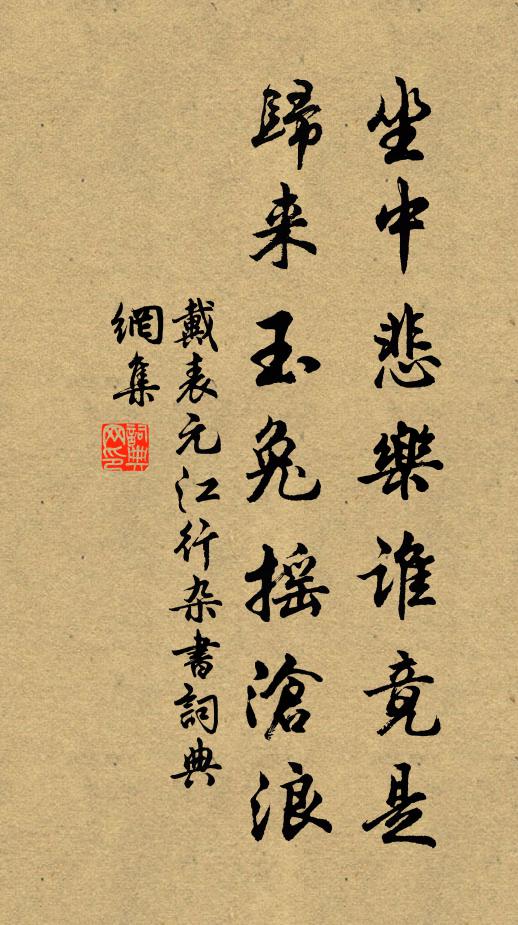 坐中悲樂谁竟是
歸来玉兔摇滄浪
戴表元江行杂書詞典
網集
詞典
网印